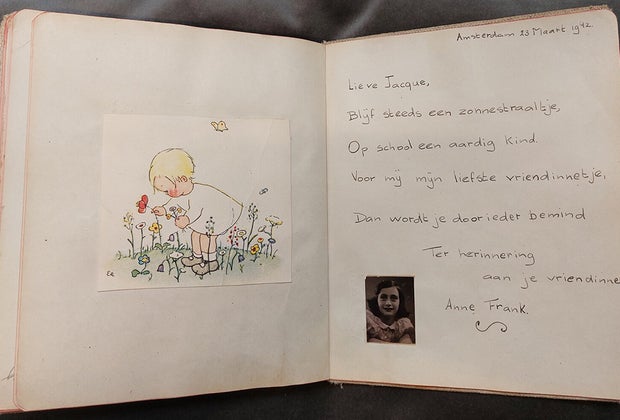 Amsterdam 23 Maart 1942.
Lieve Jacque,
Blijf steeds een zonnestraaltje,
Op school een aardig kind.
Voor mij mijn liefste vriendinnetje,
Dan wordt je door ieder bemind
Ter herinnering
aan je vriendinne
Anne Frank.